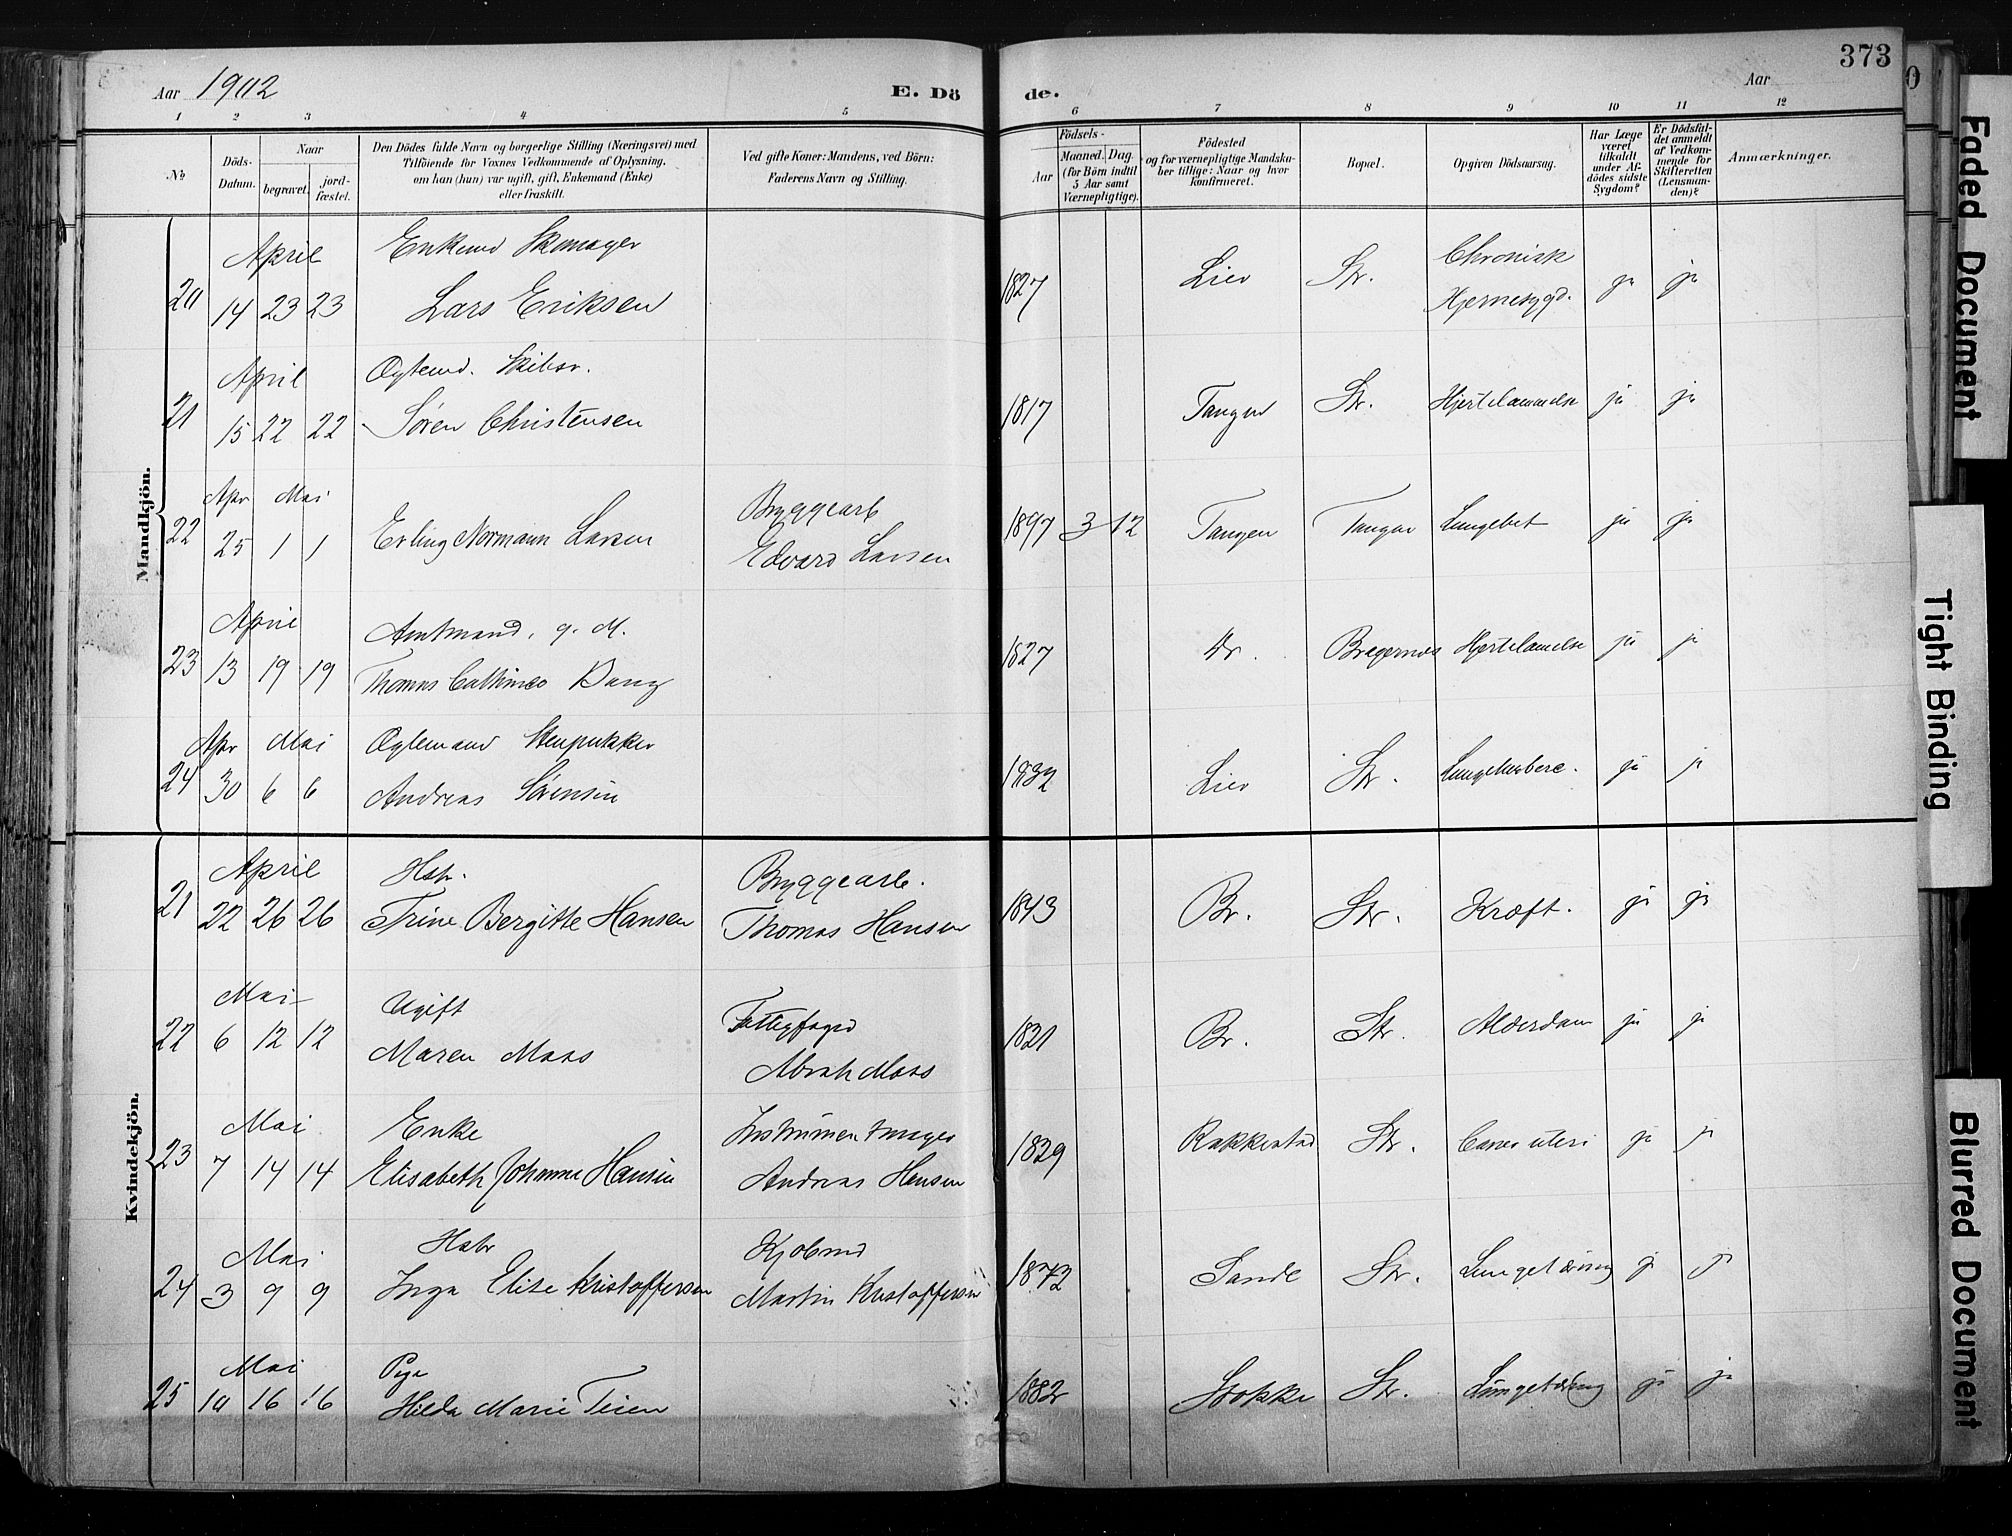 373
Aar 1902 E. Dö de. Aar
1 2 3 4 5 6 7 8 9 10 11 12
No
Döds-Datum.
Naar
begravet.
jord-fæstet.
Den Dödes fulde Navn og borgerlige Stilling (Næringsvei) med
Tilföiende for Voxnes Vedkommende af Oplysning,
om han (hun) var ugift, gift, Enkemand (Enke)
eller fraskilt.
Ved gifte Koner: Mandens, ved Börn:
Faderens Navn og Stilling.
Födsels-
Aar
Maaned. Dag.
(for Börn indtil
5 Aar samt
Værnepligtige).
Födested
og for værnepligtige Mandska-
ber tillige: Naar og hvor
konfirmeret.
Bopæl.
Opgiven Dödsaarsag.
Har Læge
været
tilkaldt
under Af-
dödes sidste
Sygdom?
Er Dödsfal-
det anmeldt
af Vedkom-
mende for
Skifteretten
(Lensman-
den)?
Anmærkninger.
Mandkjön.
April Enkemd Skomager Chronisk
20 14 23 23 Lars Eriksen 1827 Lier Str. Hjernesygd. ja ja
April Ægtemd. Skibsr.
21 15 22 22 Søren Christensen 1817 Tangen Str. Hjertelammelse ja ja
Apr Mai Bryggearb
22 25 1 1 Erling Normann Larsen Edvard Larsen 1897 3 12 Tangen Tangen Lungebet ja ja
April Amtmand, g. M.
23 13 19 19 Thomas Cathinco Bang 1827 Br. Bragernæs Hjertelamelse ja ja
Apr Mai Ægtemand Stenpukker
24 30 6 6 Andreas Sørensen 1832 Lier Str. ja ja
Kvindekjön.
April Hstr. Bryggearb.
21 22 26 26 Trine Bergitte Hansen Thomas Hansen 1843 Br. Str. Kræft. ja ja
Mai Ugift Fattigfoged
22 6 12 12 Maren Maas Abrah Maas 1821 Br. Str. Alderdom ja ja
Mai Enke Instrumentmager
23 7 14 14 Elisabeth Johanne Hansen Andreas Hansen 1829 Rakkestad Str. Cancer uteri ja ja
Mai Hstr Kjøbmd
24 3 9 9 Inga Elise Kristoffersen Martin Kristoffersen 1872 Sande Str. Lungetæring ja ja
Mai Pige
25 10 16 16 Hilda Marie Teien 1882 Stokke Str. Lungetæring ja ja
Faded Document
Tight Binding
Blurred Document